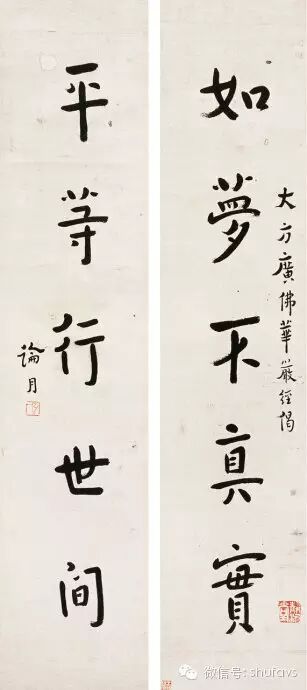 大方廣佛華嚴經偈
如夢不真實
平等行世間
論月
微信号: shufavs